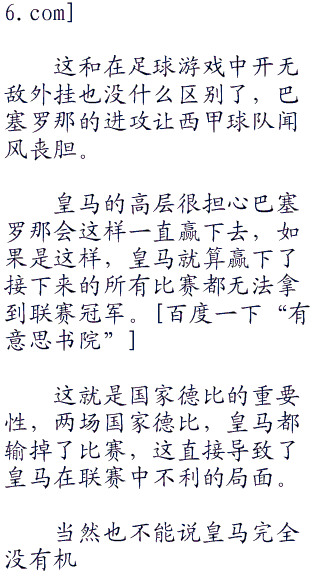 6.com]
这和在足球游戏中开无
敌外挂也没什么区别了，巴
塞罗那的进攻让西甲球队闻
风丧胆。
皇马的高层很担心巴塞
罗那会这样一直赢下去，如
果是这样，皇马就算赢下了
接下来的所有比赛都无法拿
到联赛冠军。[百度一下“有
意思书院”]
这就是国家德比的重要
性，两场国家德比，皇马都
输掉了比赛，这直接导致了
皇马在联赛中不利的局面。
当然也不能说皇马完全
没有机